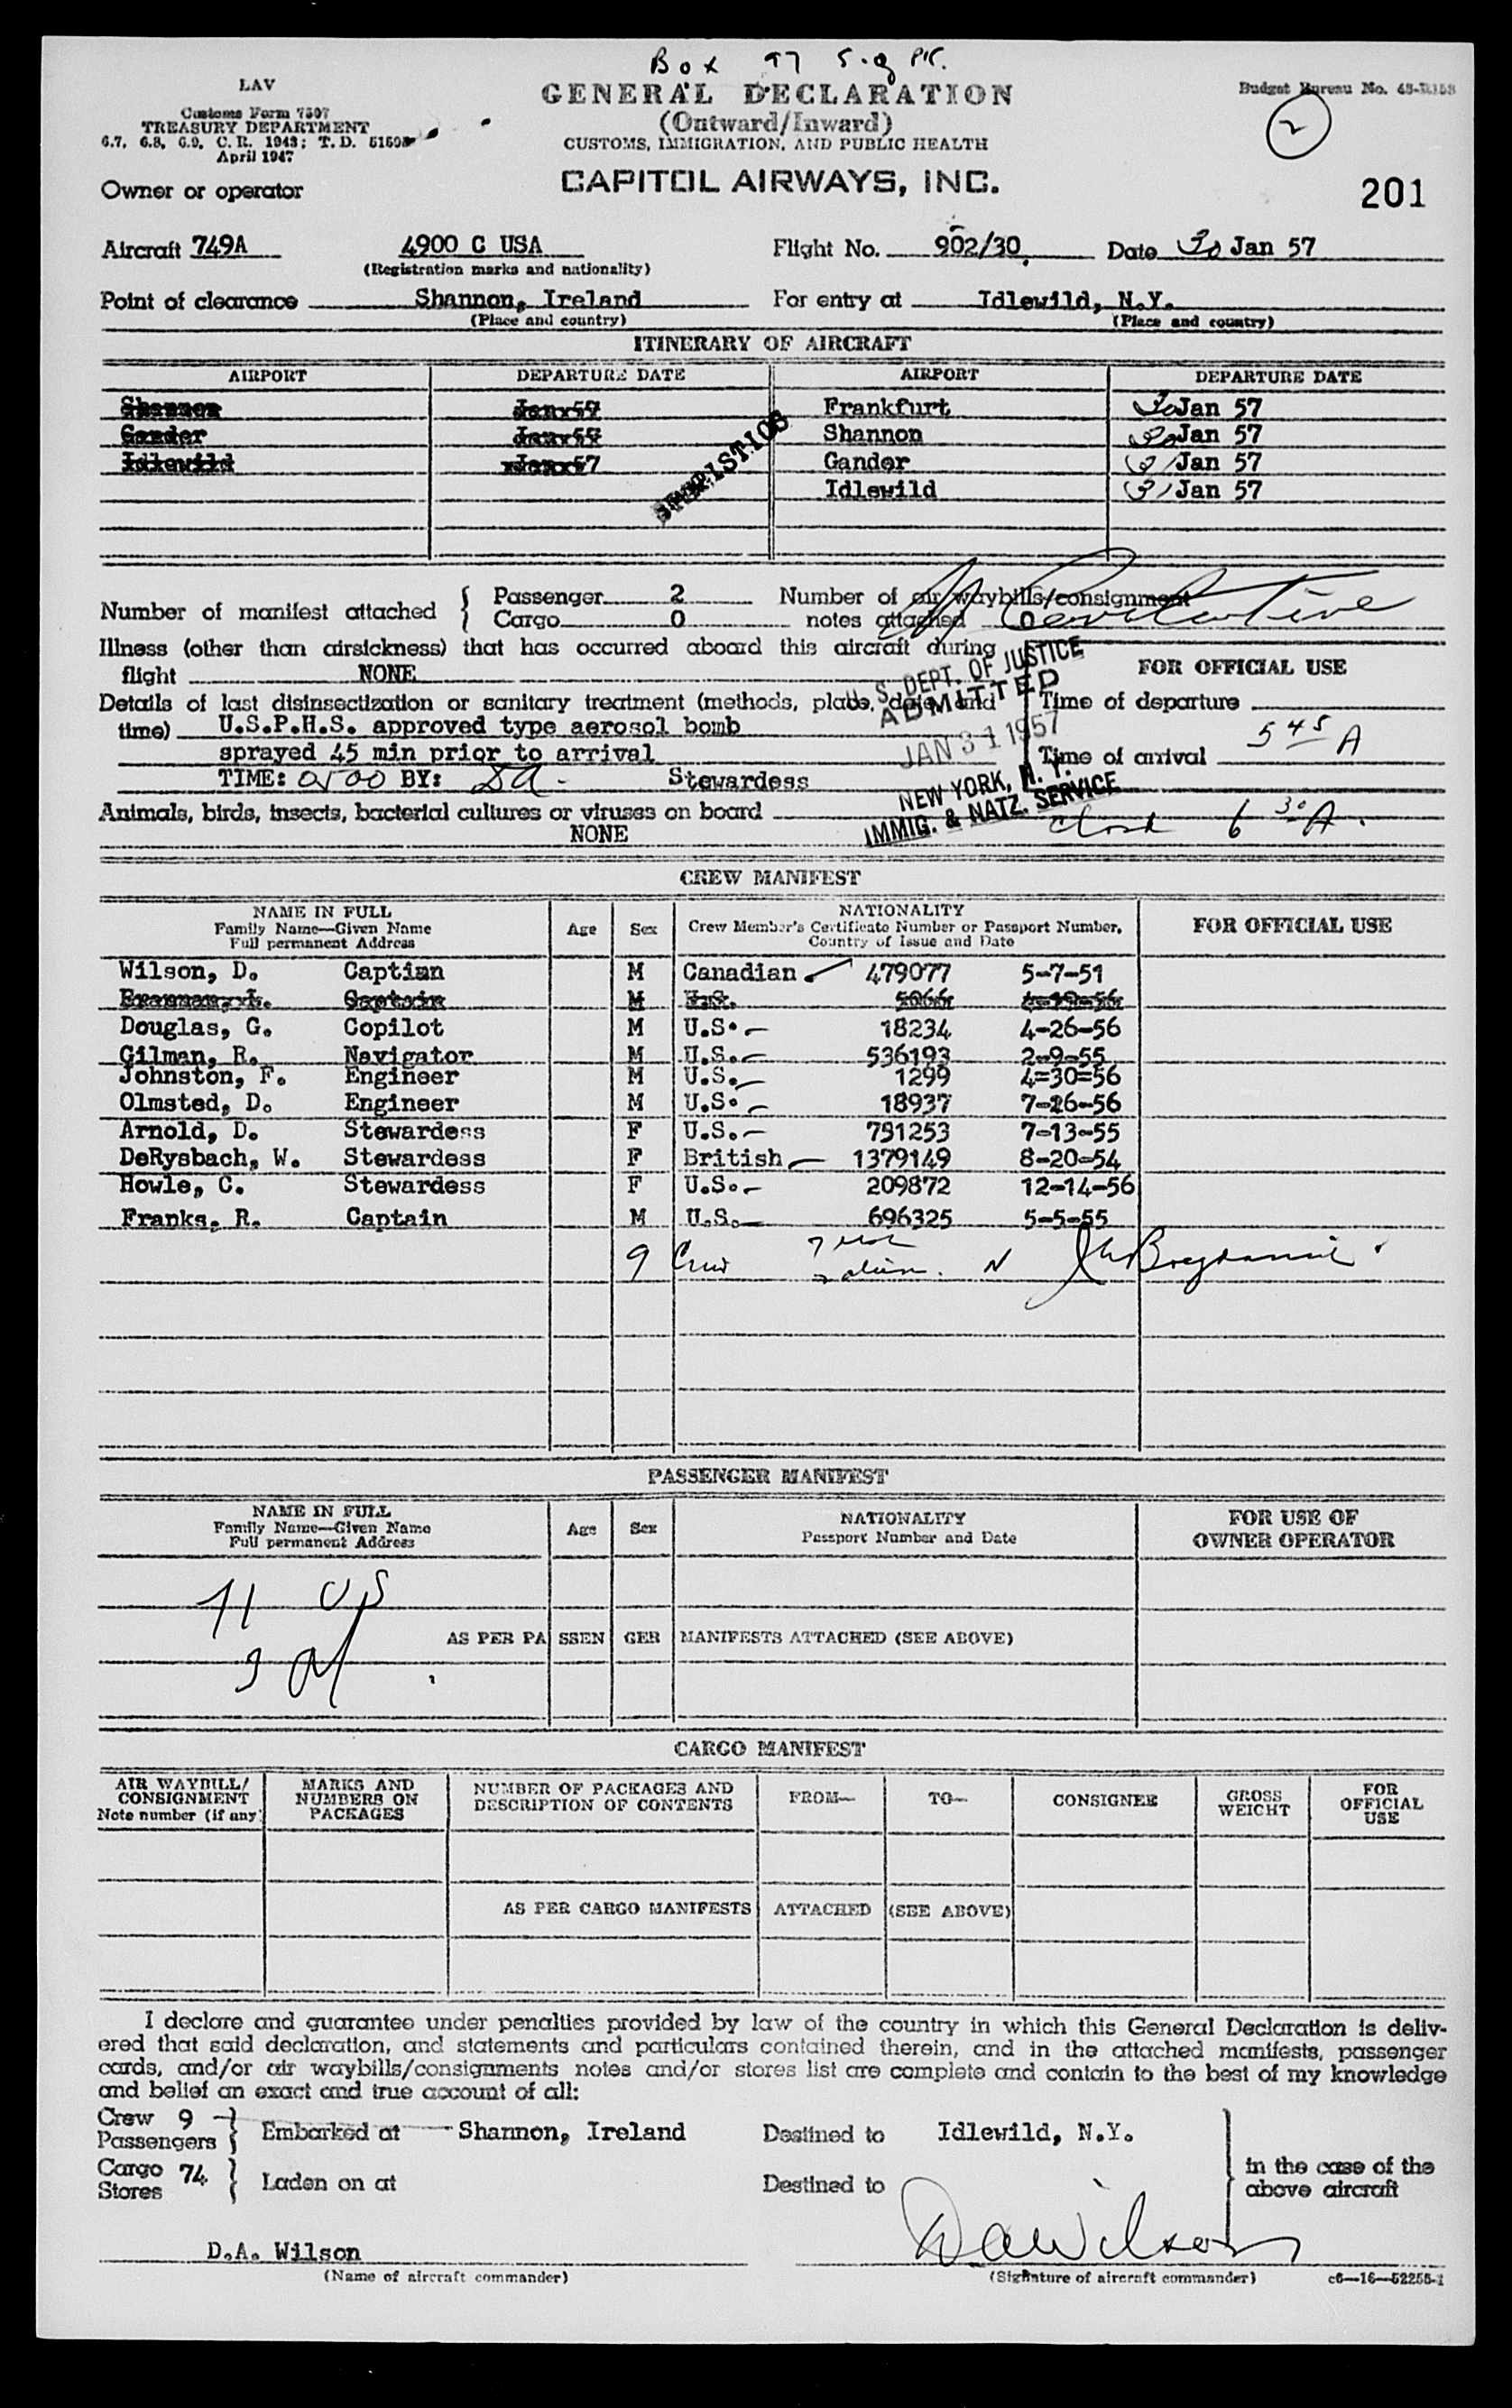 Box 97 S.
LAV
Customs Form 7507
TREASURY DEPARTMENT
6.7, 6.8, 6.9, C. R. 1943; T. D. 51598
April 1947
GENERAL DECLARATION
(Outward/Inward)
CUSTOMS, IMMIGRATION, AND PUBLIC HEALTH
Budget Bureau No.
2
Owner or operator
CAPITOL AIRWAYS, INC.
201
Aircraft 749A 4900 C USA Flight No. 902/30 Date 30 Jan 57
(Registration marks and nationality)
Point of clearance Shannon, Ireland For entry at Idlewild, N.Y.
(Place and country) (Place and country)
ITINERARY OF AIRCRAFT
AIRPORT DEPARTURE DATE AIRPORT DEPARTURE DATE
Shannon Jan 57 Frankfurt 30 Jan 57
Gander Jan 57 Shannon 30 Jan 57
Idlewild Jan 57 Gander 31 Jan 57
Idlewild 31 Jan 57
STATISTICS
Number of manifest attached { Passenger 2 Number of air waybills/consignment
Cargo 0 notes attached 0
Illness (other than airsickness) that has occurred aboard this aircraft during
flight NONE
FOR OFFICIAL USE
Details of last disinsectization or sanitary treatment (methods, place, date, and
time) U.S.P.H.S. approved type aerosol bomb
sprayed 45 min prior to arrival
TIME: 0500 BY: DA - Stewardess
Time of departure
Time of arrival 5 45 A
U. S. DEPT. OF JUSTICE
ADMITTED
JAN 31 1957
NEW YORK, N. Y.
IMMIG. & NATZ. SERVICE
Animals, birds, insects, bacterial cultures or viruses on board
NONE
6 30 A.
CREW MANIFEST
NAME IN FULL
Family Name—Given Name
Full permanent Address
Age Sex
NATIONALITY
Crew Member's Certificate Number or Passport Number,
Country of Issue and Date
FOR OFFICIAL USE
Wilson, D. Captian M Canadian 479077 5-7-51
Captain M U.S. 5066
Douglas, G. Copilot M U.S. 18234 4-26-56
Gilman, R. Navigator M U.S. 536193 2-9-55
Johnston, F. Engineer M U.S. 1299 4=30=56
Olmsted, D. Engineer M U.S. 18937 7-26-56
Arnold, D. Stewardess F U.S. 791253 7-13-55
DeRysbach, W. Stewardess F British 1379149 8-20-54
Howle, C. Stewardess F U.S. 209872 12-14-56
Franks, R. Captain M U.S. 696325 5-5-55
9 Crew
PASSENGER MANIFEST
NAME IN FULL
Family Name—Given Name
Full permanent Address
Age Sex
NATIONALITY
Passport Number and Date
FOR USE OF
OWNER OPERATOR
71 US
AS PER PASSENGER MANIFESTS ATTACHED (SEE ABOVE)
3
CARGO MANIFEST
AIR WAYBILL/
CONSIGNMENT
Note number (if any)
MARKS AND
NUMBERS ON
PACKAGES
NUMBER OF PACKAGES AND
DESCRIPTION OF CONTENTS
FROM— TO— CONSIGNEE
GROSS
WEIGHT
FOR
OFFICIAL
USE
AS PER CARGO MANIFESTS ATTACHED (SEE ABOVE)
I declare and guarantee under penalties provided by law of the country in which this General Declaration is deliv-
ered that said declaration, and statements and particulars contained therein, and in the attached manifests, passenger
cards, and/or air waybills/consignments notes and/or stores list are complete and contain to the best of my knowledge
and belief an exact and true account of all:
Crew 9
Passengers } Embarked at Shannon, Ireland Destined to Idlewild, N.Y.
Cargo 74
Stores } Laden on at Destined to
in the case of the
above aircraft
D.A. Wilson DAWilson
(Name of aircraft commander) (Signature of aircraft commander) c6—16—52255-1